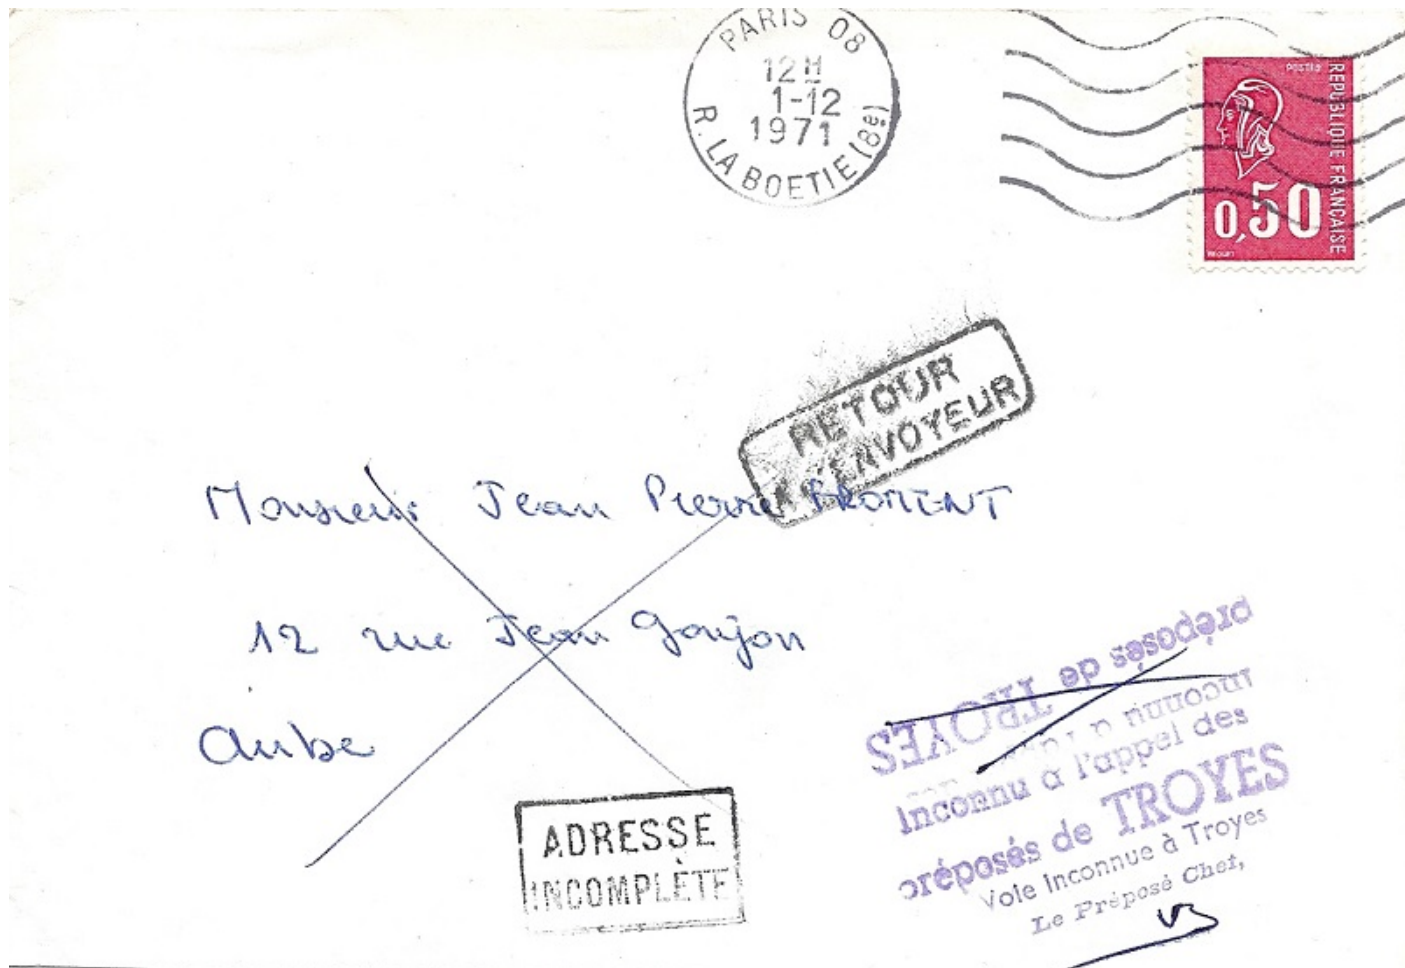 PARIS 08
12 H
1-12
1971
R. LA BOETIE (8e)
POSTES
REPUBLIQUE FRANÇAISE
0,50
RETOUR
A L'ENVOYEUR
Monsieur Jean Pierre FROMENT
12 rue Jean Goujon
Aube
ADRESSE
INCOMPLÈTE
préposés de TROYES
Inconnu à l'appel des
Inconnu à l'appel des
préposés de TROYES
Voie Inconnue à Troyes
Le Préposé Chef,